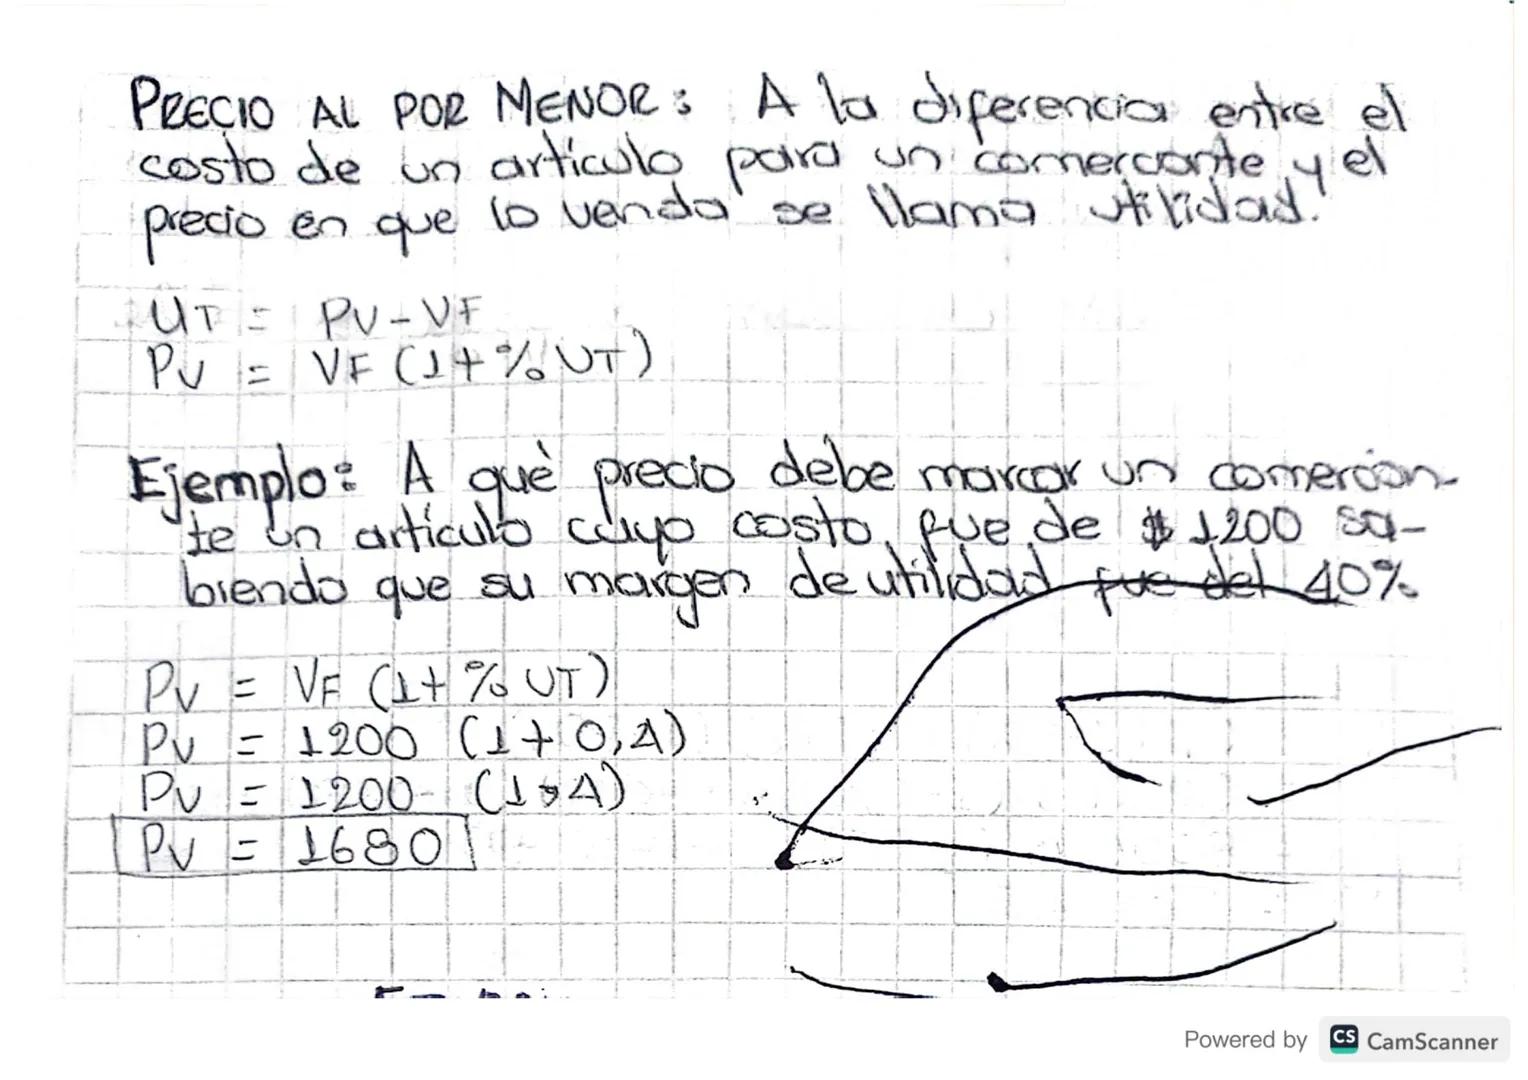 PRECIO AL POR MENOR: A la diferencia entre el
costo de un artículo para un comerciante y el
precio en que lo venda se llama utilidad.
UT = PV - VF
PV = VF (1 + % UT)
Ejemplo: A què precio debe marcar un comercian-
te un artículo cuyo costo fue de $ 1200 sa-
biendo que su margen de utilidad fue del 40%
PV = VF (1 + % UT)
PV = 1200 (1 + 0,4)
PV = 1200 (1,4)
PV = 1680
Powered by CS CamScanner